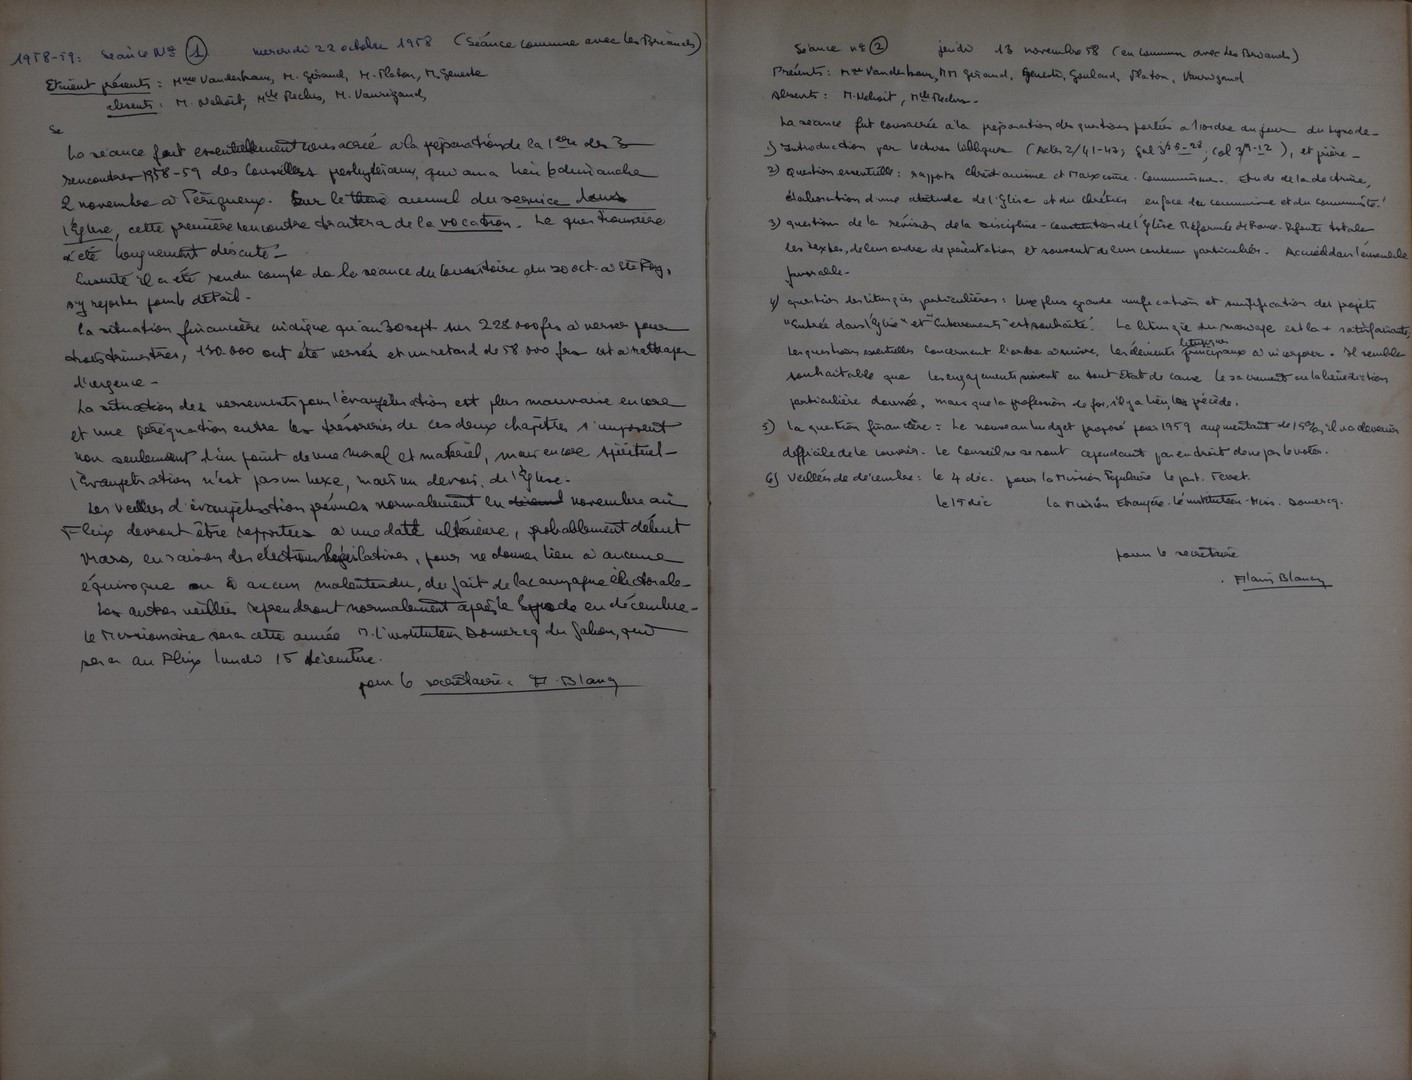 1958-59: Séance N° 1 mercredi 22 octobre 1958 (Séance commune avec les Briands)
Etaient présents : Mme Vanderham, M. Giraud, M. Platon, M. Geneste
absents : M. Mlle Reclus, M. Vaurigaud,
Se
La séance fut essentiellement consacrée à la préparation de la 1ère des 3
rencontres 1958-59 des Conseillers presbytéraux, qui aura lieu le dimanche
2 novembre à Périgueux. Sur le thème annuel du service dans
l'Eglise, cette première rencontre traitera de la vocation. Le questionnaire
a été longuement discuté-
Ensuite il a été rendu compte de la séance du Consistoire du 20 oct. à Ste Foy,
s'y reporter pour le détail-
La situation financière indique qu'au 30 sept sur 228 000 frs à verser pour
trois trimestres, 170.000 ont été versés et un retard de 58 000 frs est à rattraper
d'urgence-
La situation des versements pour l'évangélisation est plus mauvaise encore
et une péréquation entre les trésoreries de ces deux chapitres s'imposent
non seulement d'un point de vue moral et matériel, mais encore spirituel-
l'Evangélisation n'est pas un luxe, mais un devoir de l'Eglise-
Les veillées d'évangélisation prévues normalement en novembre au
Fleix devront être reportées à une date ultérieure, probablement début
Mars, en raison des élections législatives, pour ne donner lieu à aucune
équivoque ou à aucun malentendu, du fait de la campagne électorale-
Les autres veillées reprendront normalement après le Synode en décembre-
le Missionnaire sera cette année M. l'instituteur Domercq du Gabon, qui
sera au Fleix lundi 15 décembre.
pour le secrétaire : A. Blancy
Séance n° 2 jeudi 13 novembre 58 (en commun avec les Briands)
Présents : Mme Vanderham, MM Giraud, Geneste, Goulard, Platon, Vaurigaud
Absents : M. Mlle Reclus-
La séance fut consacrée à la préparation des questions portées à l'ordre du jour du Synode-
1) Introduction par lectures bibliques (Actes 2/41-47; Gal 3/ 26-28; Col 3/ 1-12), et prière-
2) question essentielle : rapports Christianisme et Marxisme-Communisme. Etude de la doctrine,
élaboration d'une attitude de l'Eglise et du chrétien en face du communisme et du communiste.
3) question de la révision de la Discipline-Constitution de l'Eglise Réformée de France. Refonte totale
les textes, de leur ordre de présentation et souvent de leur contenu particulier. Accueil dans l'ensemble
favorable-
4) question des liturgies particulières : Une plus grande unification et simplification des projets
"Entrée dans l'Eglise" et "Enterrements" est souhaitée. La liturgie du mariage est la + satisfaisante,
les questions essentielles concernent l'ordre à suivre, les éléments liturgiques principaux à incorporer. Il semble
souhaitable que les engagements suivent en tout état de cause le sacrement ou la bénédiction
particulière donnée, mais que la profession de foi, s'il y a lieu, les précède.
5) la question financière : Le nouveau budget proposé pour 1959 augmentant de 15%, il va devenir
difficile de le couvrir. Le Conseil ne se sent cependant pas en droit de ne pas le voter.
6) Veillées de décembre : le 4 déc. pour la Mission Populaire le past.
le 15 déc la Mission Etrangère - l'instituteur-Miss. Domercq.
pour le secrétaire
Alain Blancy